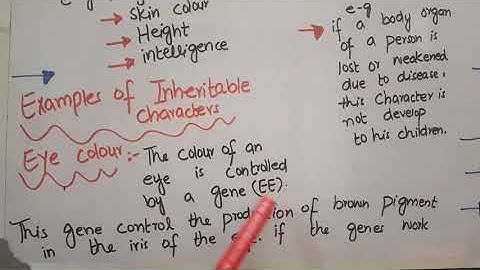 skin colour
Height
intelligence
e-g
if a body organ
of a person is
lost or weakened
due to disease,
this character is
not develop
to his children.
Examples of Inheritable
characters
Eye colour:- The colour of an
eye is controlled
by a gene (EE).
This gene control the production of brown pigment
in the iris of the if the genes work